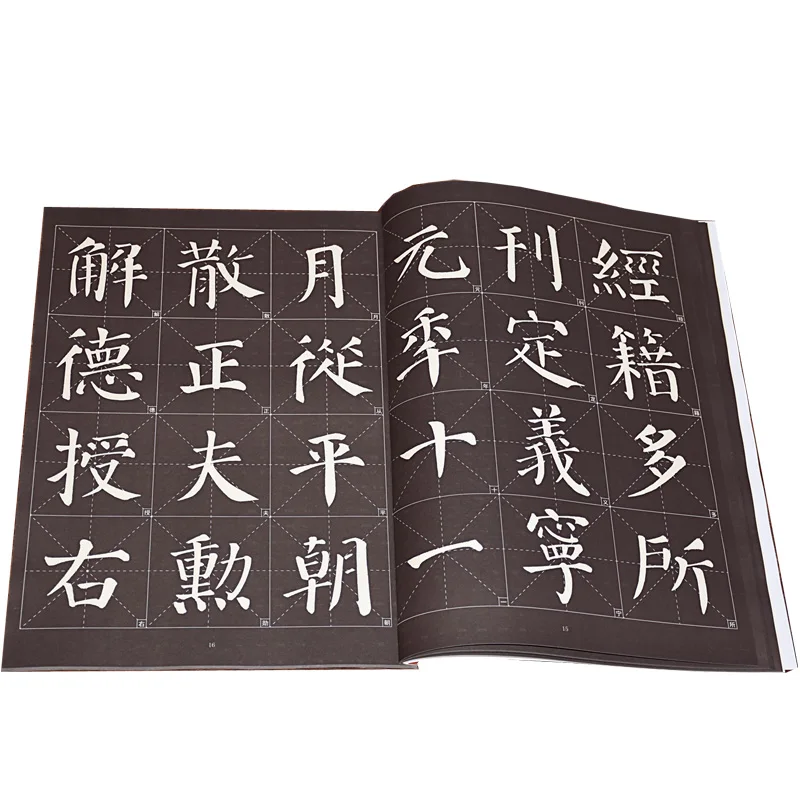 經籍多所
刊定義寧
元年十一
15
月從平朝
散正夫勲
解德授右
16